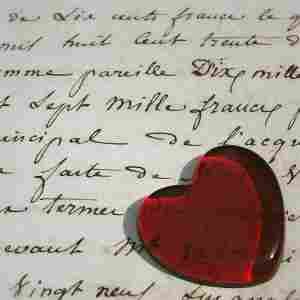 de Six cents francs le q
mil huit cent trente d
omme pareille Dix mille
et Sept mille francs p
incipal de l'acqu
faite de
termer
devant Me
Vingt neuf